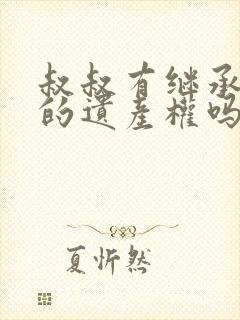 叔叔有继承
的遗產權吗
夏忻然